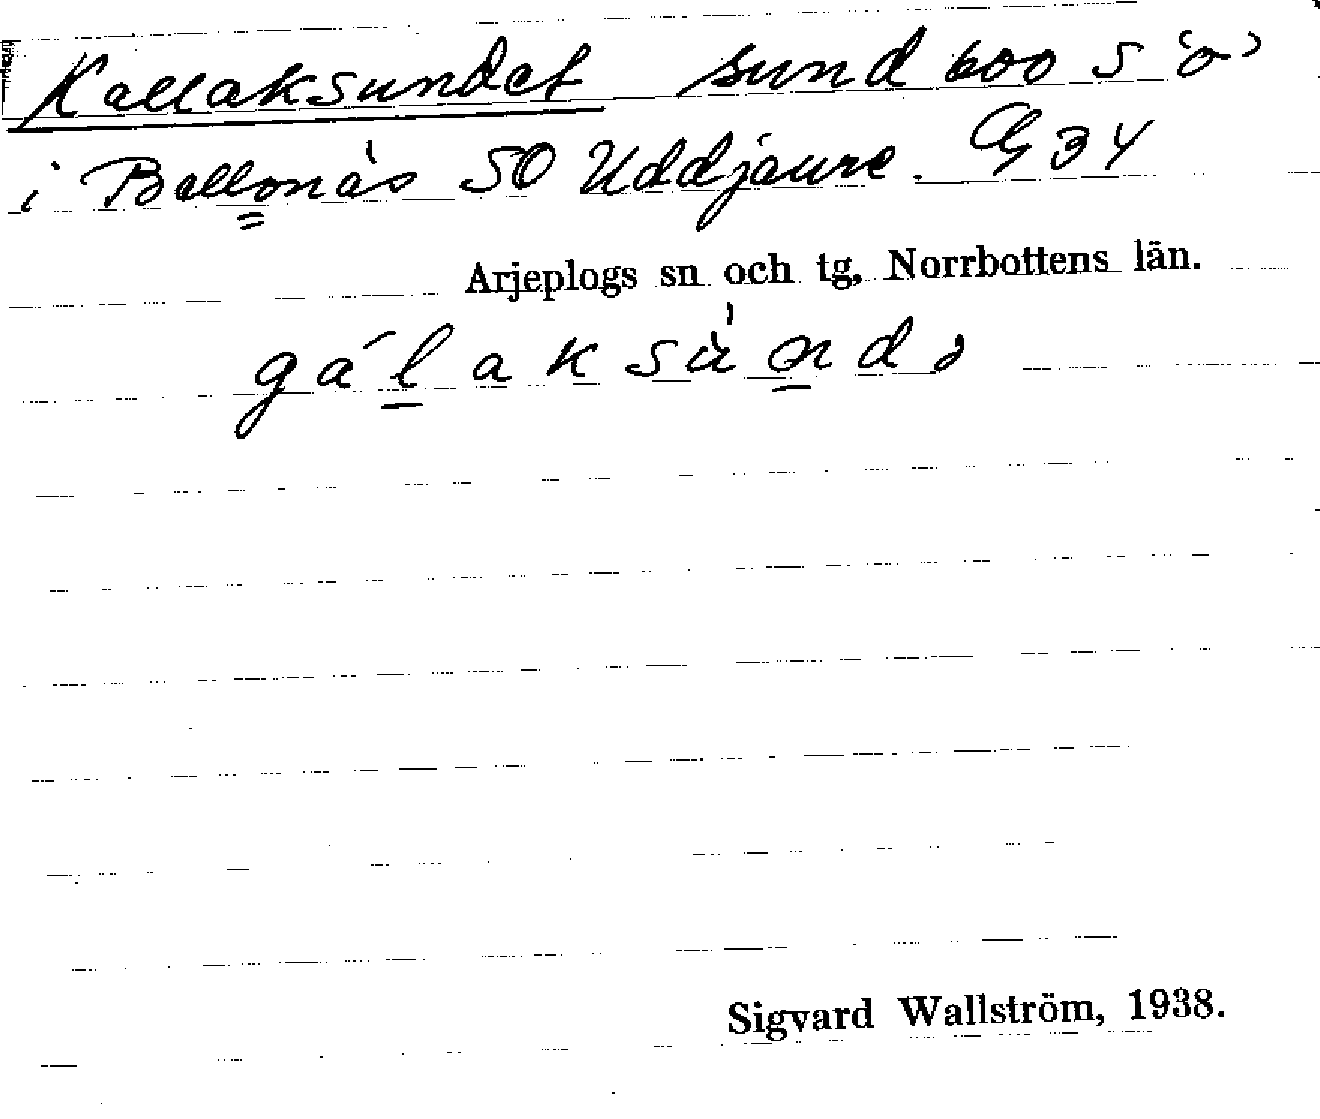 Kallaksundet sund 600 S 'o'
i Ballonäs SO Uddjaure. G 34
Arjeplogs sn och tg, Norrbottens län.
gálaksùndə
Sigvard Wallström, 1938.